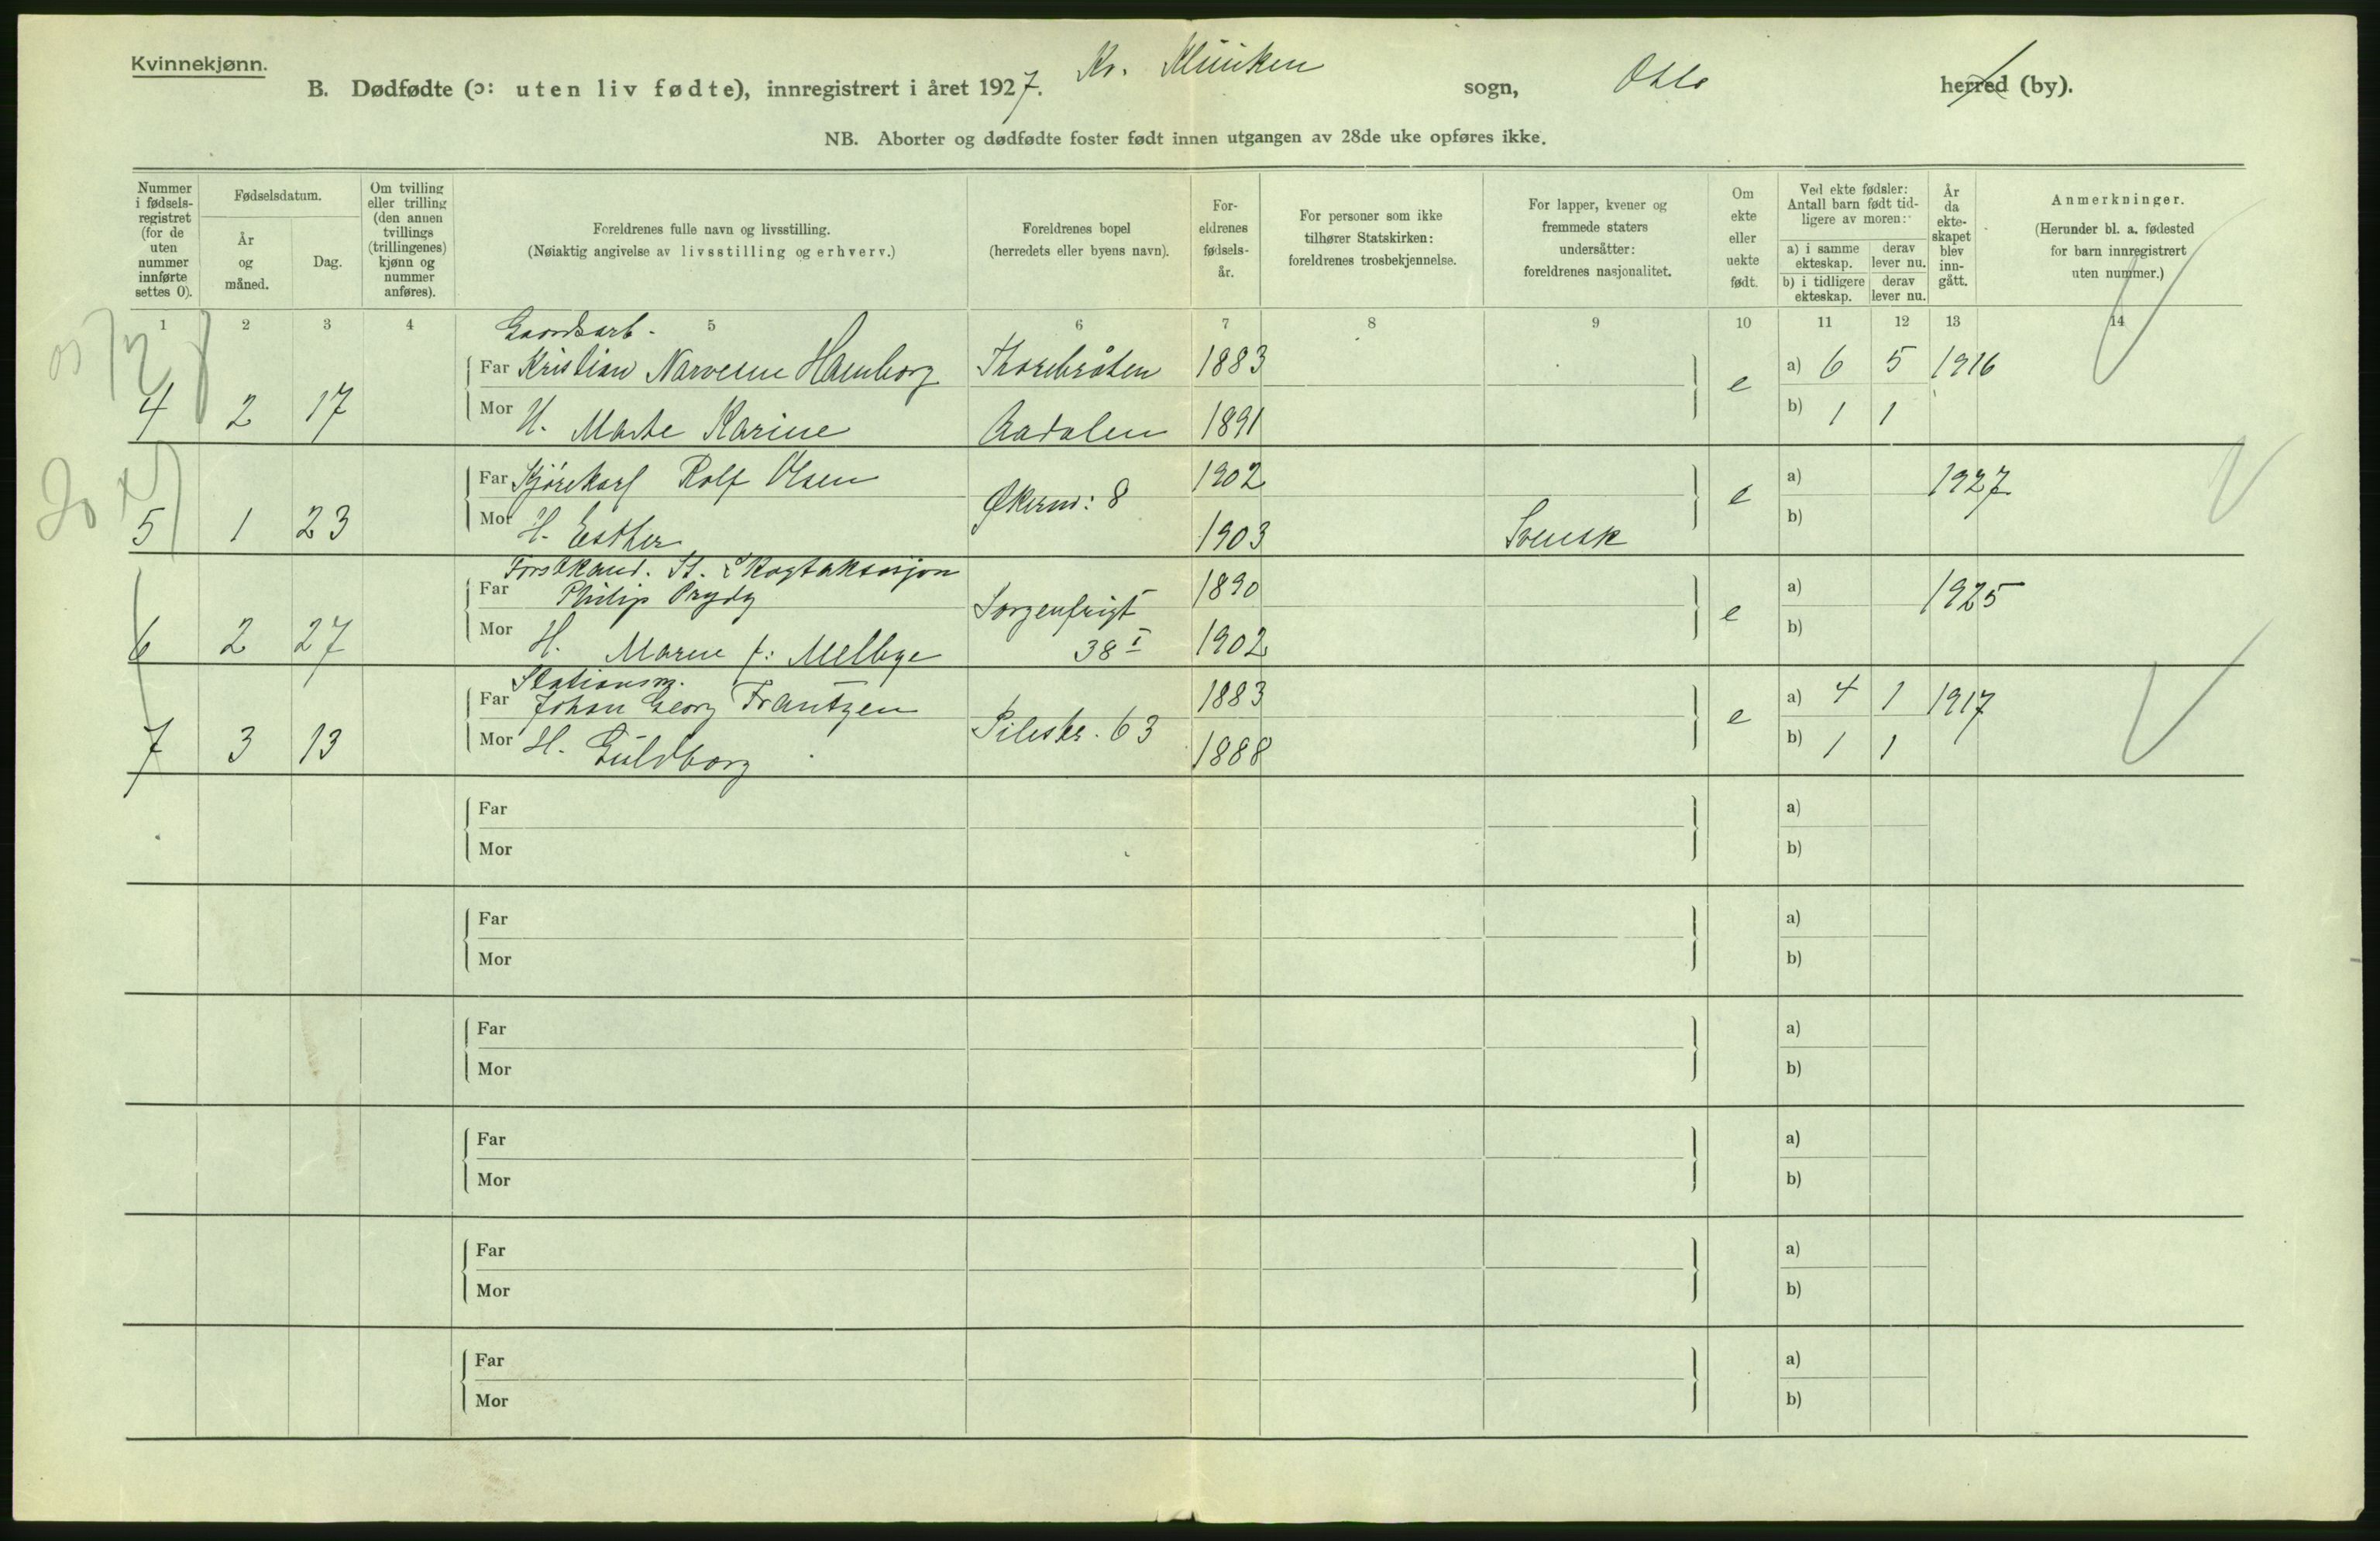 Kvinnekjønn.
B. Dødfødte (ɔ: uten liv fødte), innregistrert i året 1927. Kv. Kliniken sogn, Oslo herred (by).
NB. Aborter og dødfødte foster født innen utgangen av 28de uke opføres ikke.
Nummer i fødsels-registret (for de uten nummer innførte settes 0).
Fødselsdatum.
År og måned.
Dag.
Om tvilling eller trilling (den annen tvillings (trillingenes) kjønn og nummer anføres).
Foreldrenes fulle navn og livsstilling.
(Nøiaktig angivelse av livsstilling og erhverv.)
Foreldrenes bopel
(herredets eller byens navn).
For-eldrenes fødsels-år.
For personer som ikke tilhører Statskirken: foreldrenes trosbekjennelse.
For lapper, kvener og fremmede staters undersåtter: foreldrenes nasjonalitet.
Om ekte eller uekte født.
Ved ekte fødsler: Antall barn født tid-ligere av moren:
a) i samme ekteskap. derav lever nu.
b) i tidligere ekteskap. derav lever nu.
År da ekte-skapet blev inn-gått.
Anmerkninger.
(Herunder bl. a. fødested for barn innregistrert uten nummer.)
1 2 3 4 5 6 7 8 9 10 11 12 13 14
Gaardsarb.
Far Kristian Narvesen Hamborg Thorebråten 1883 e a) 6 5 1916
4 2 17 Mor H. Marte Karine Aadalen 1891 b) 1 1
Far Kjørekarl Rolf Olsen Økernv: 8 1902 e a) 1927
5 1 23 Mor H. Esther 1903 Svensk b)
Forstkand. St. Skogtaksasjon
Far Philip Prydz Sorgenfrigt 1890 e a) 1925
6 2 27 Mor H. Maren f: Melbye 38 I 1902 b)
Stationsm.
Far Johan Georg Frantzen Pilestr. 63 1883 e a) 4 1 1917
7 3 13 Mor H. Guldborg 1888 b) 1 1
Far a)
Mor b)
Far a)
Mor b)
Far a)
Mor b)
Far a)
Mor b)
Far a)
Mor b)
Far a)
Mor b)